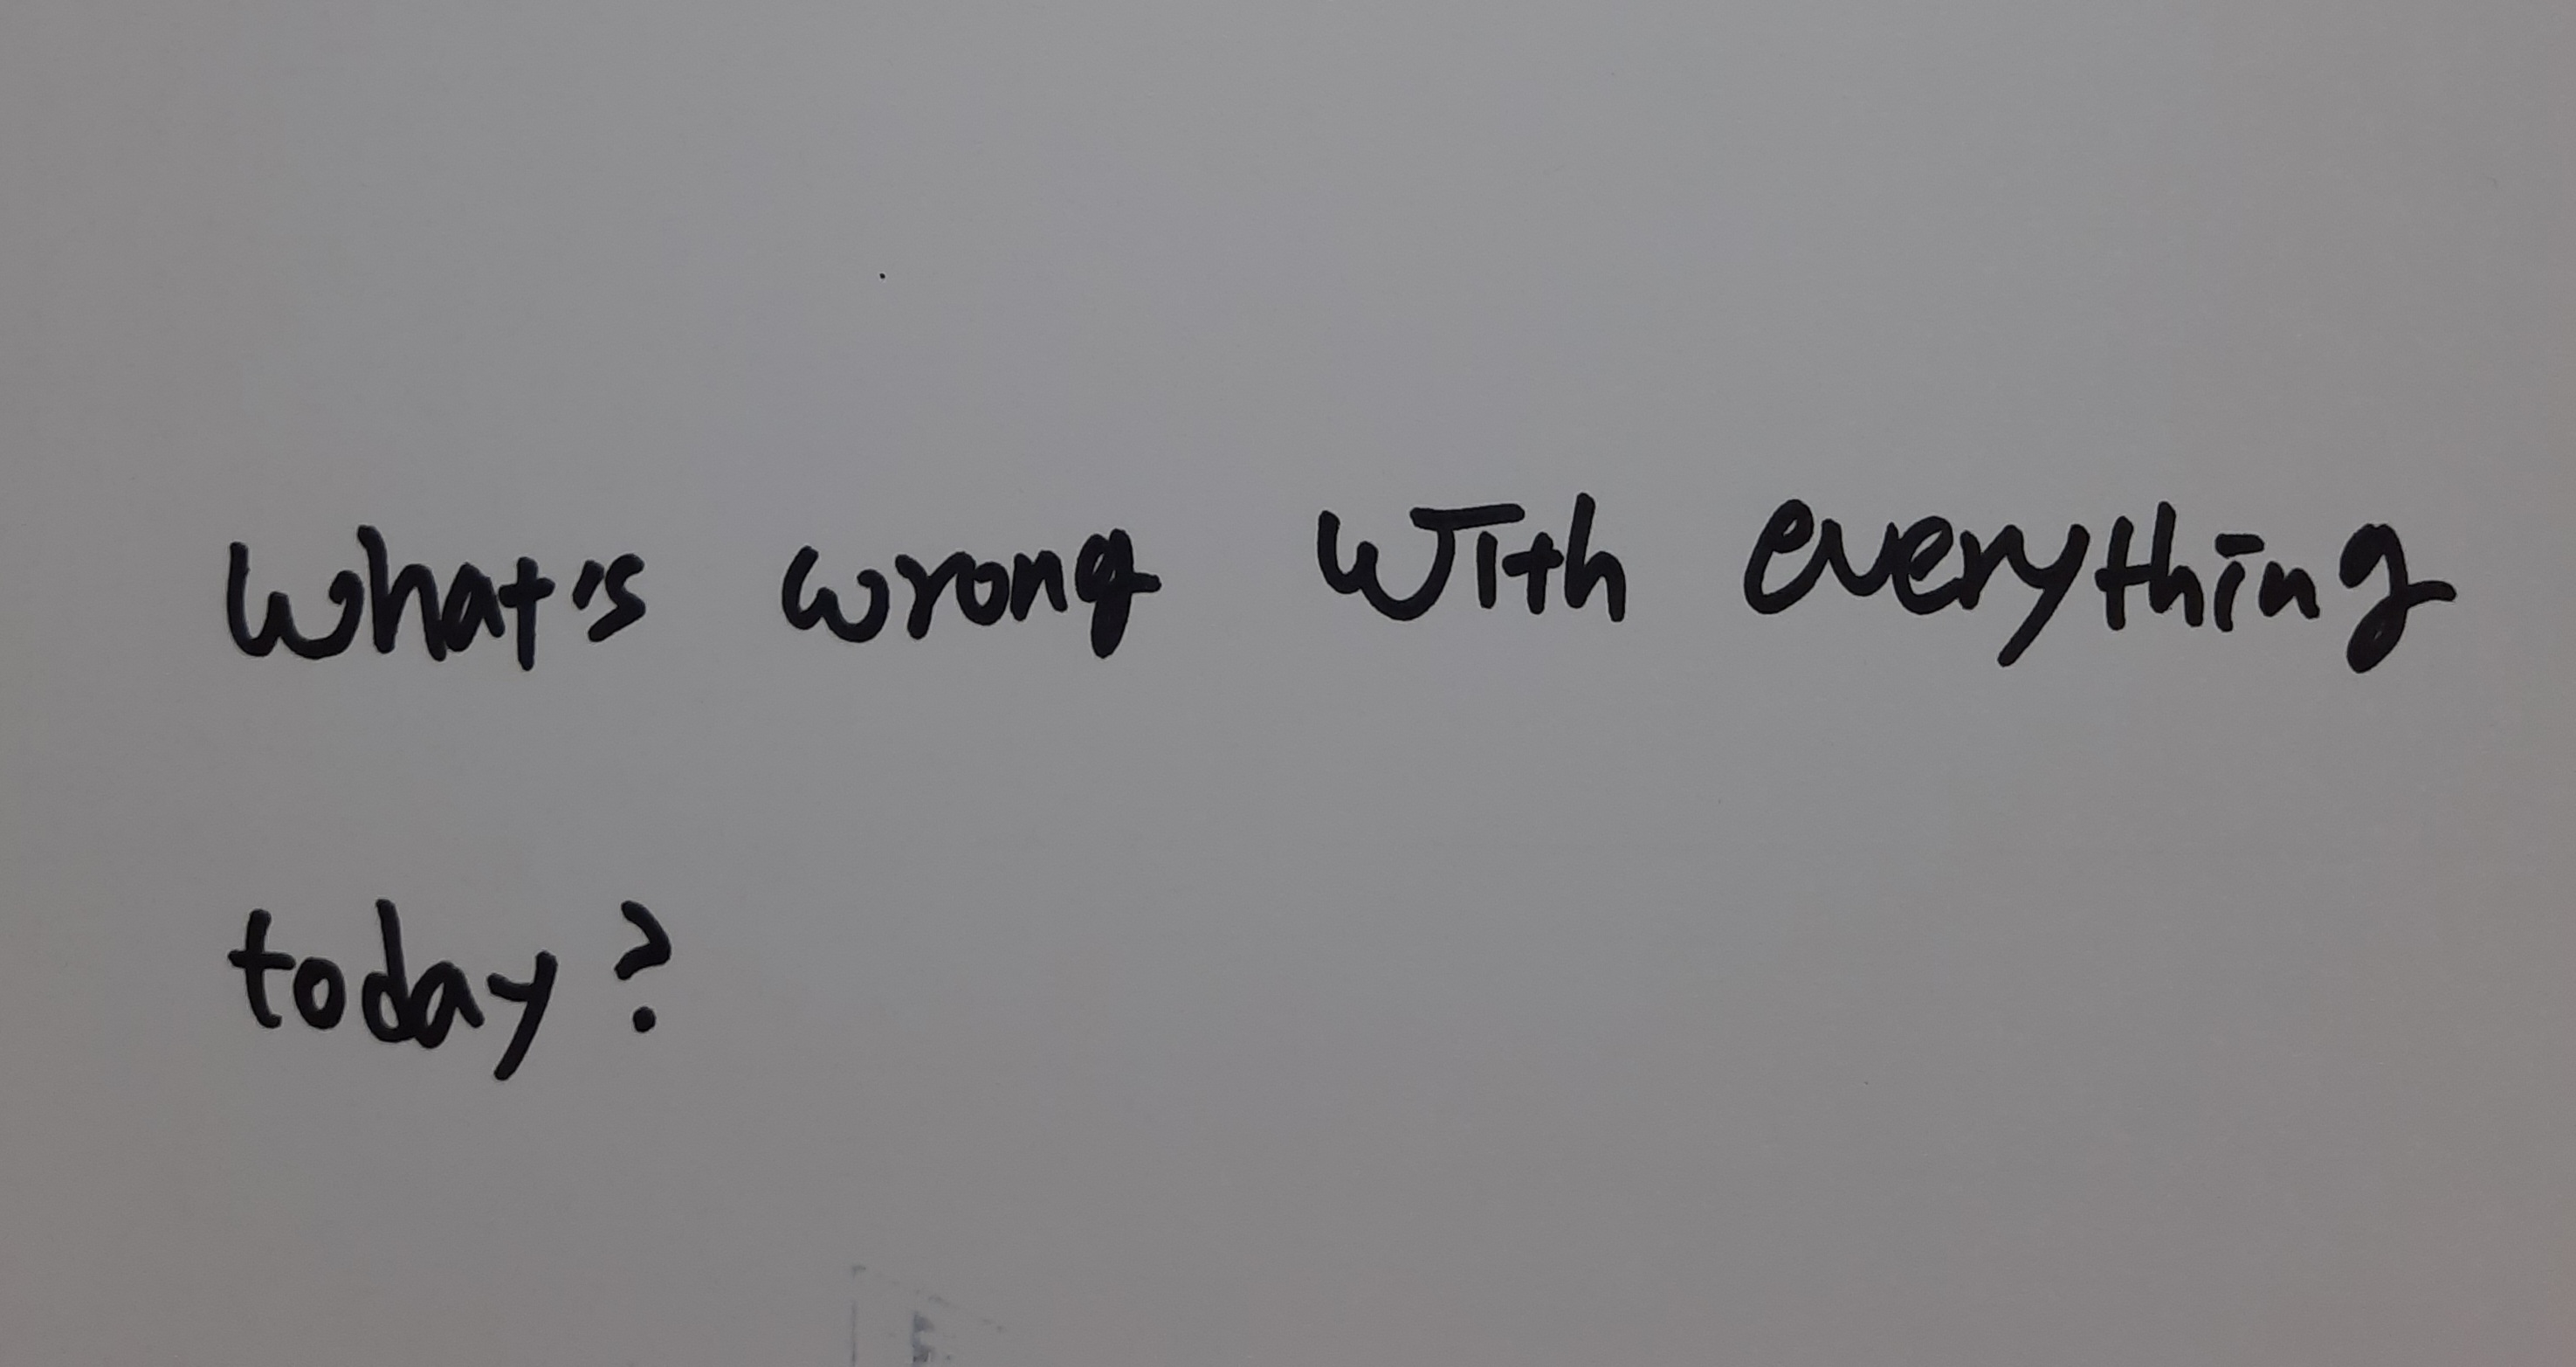 What's wrong with everything
today?